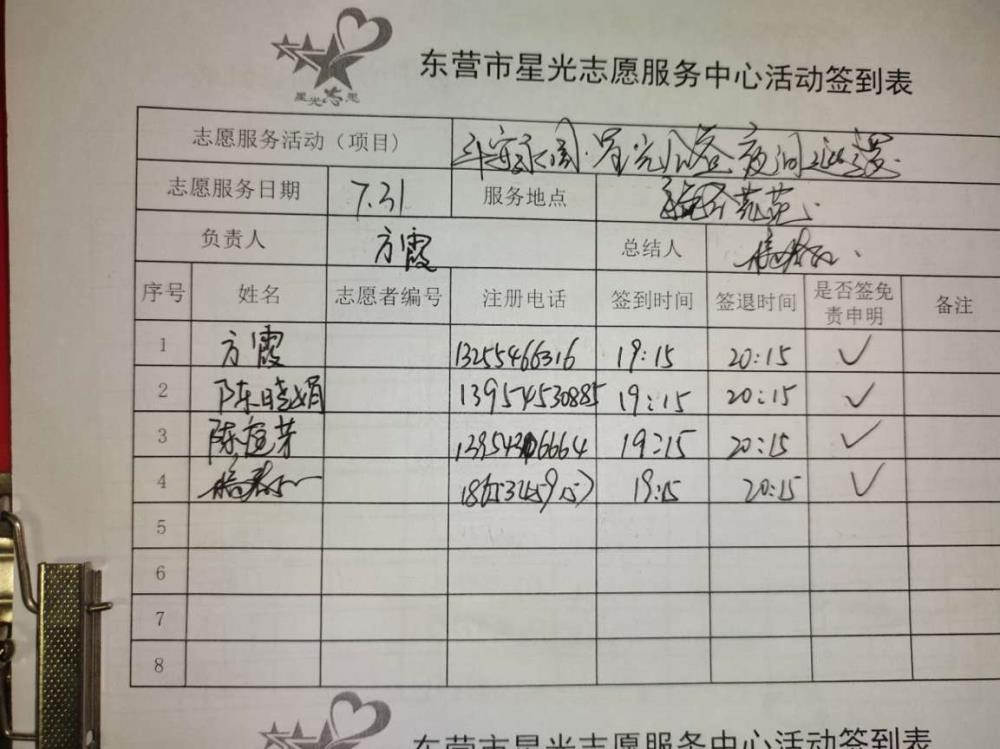 星光志愿
东营市星光志愿服务中心活动签到表
志愿服务活动（项目） 星光公益夜间巡逻
志愿服务日期 7.31 服务地点
负责人 方霞 总结人
序号 姓名 志愿者编号 注册电话 签到时间 签退时间 是否签免责申明 备注
1 方霞 13255466316 19:15 20:15 ✓
2 陈晓娟 13954530885 19:15 20:15 ✓
3 19:15 20:15 ✓
4 19:15 20:15 ✓
5
6
7
8
东营市星光志愿服务中心活动签到表